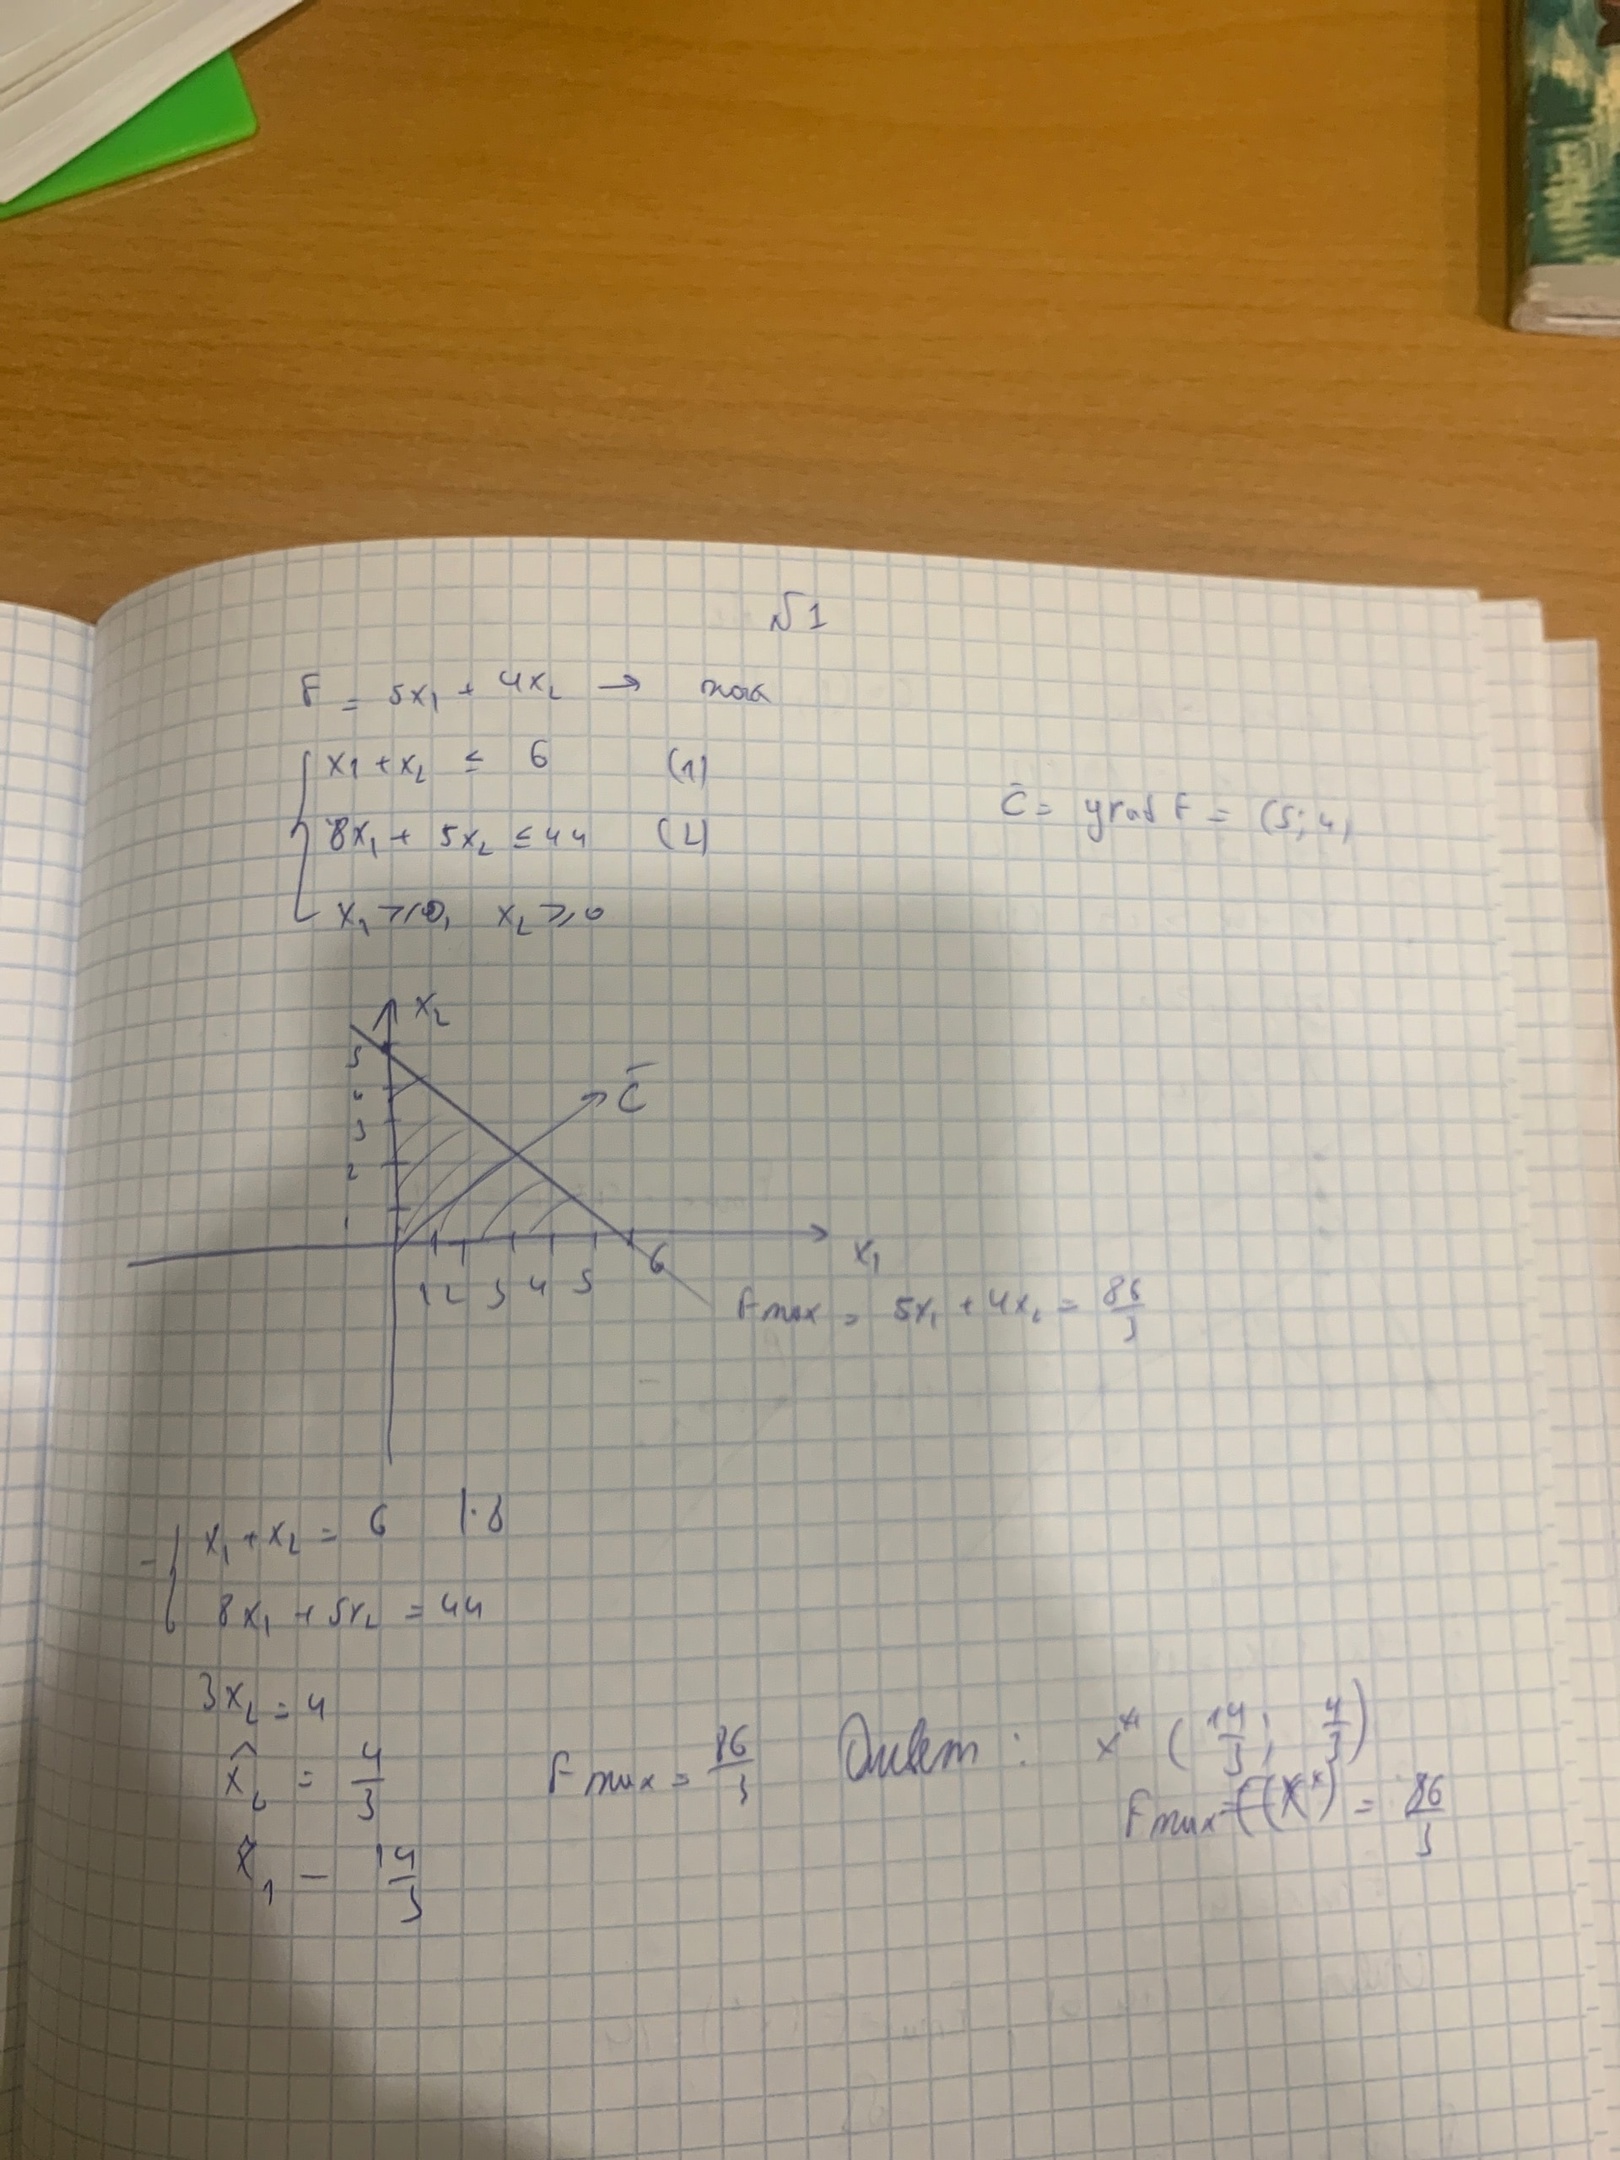 №1
F = 5x₁ + 4x₂ → max
x₁ + x₂ ≤ 6 (1)
8x₁ + 5x₂ ≤ 44 (2)
c̄ = grad F = (5; 4)
x₁ ⩾ 0, x₂ ⩾ 0
x₂
5
4
3
2
1
c̄
1 2 3 4 5 6
x₁
Fmax = 5x₁ + 4x₂ = 86/3
x₁ + x₂ = 6 |·8
8x₁ + 5x₂ = 44
3x₂ = 4
x̂₂ = 4/3
x̂₁ = 14/3
Fmax = 86/3
Ответ: x* (14/3; 4/3)
Fmax = F(X*) = 86/3